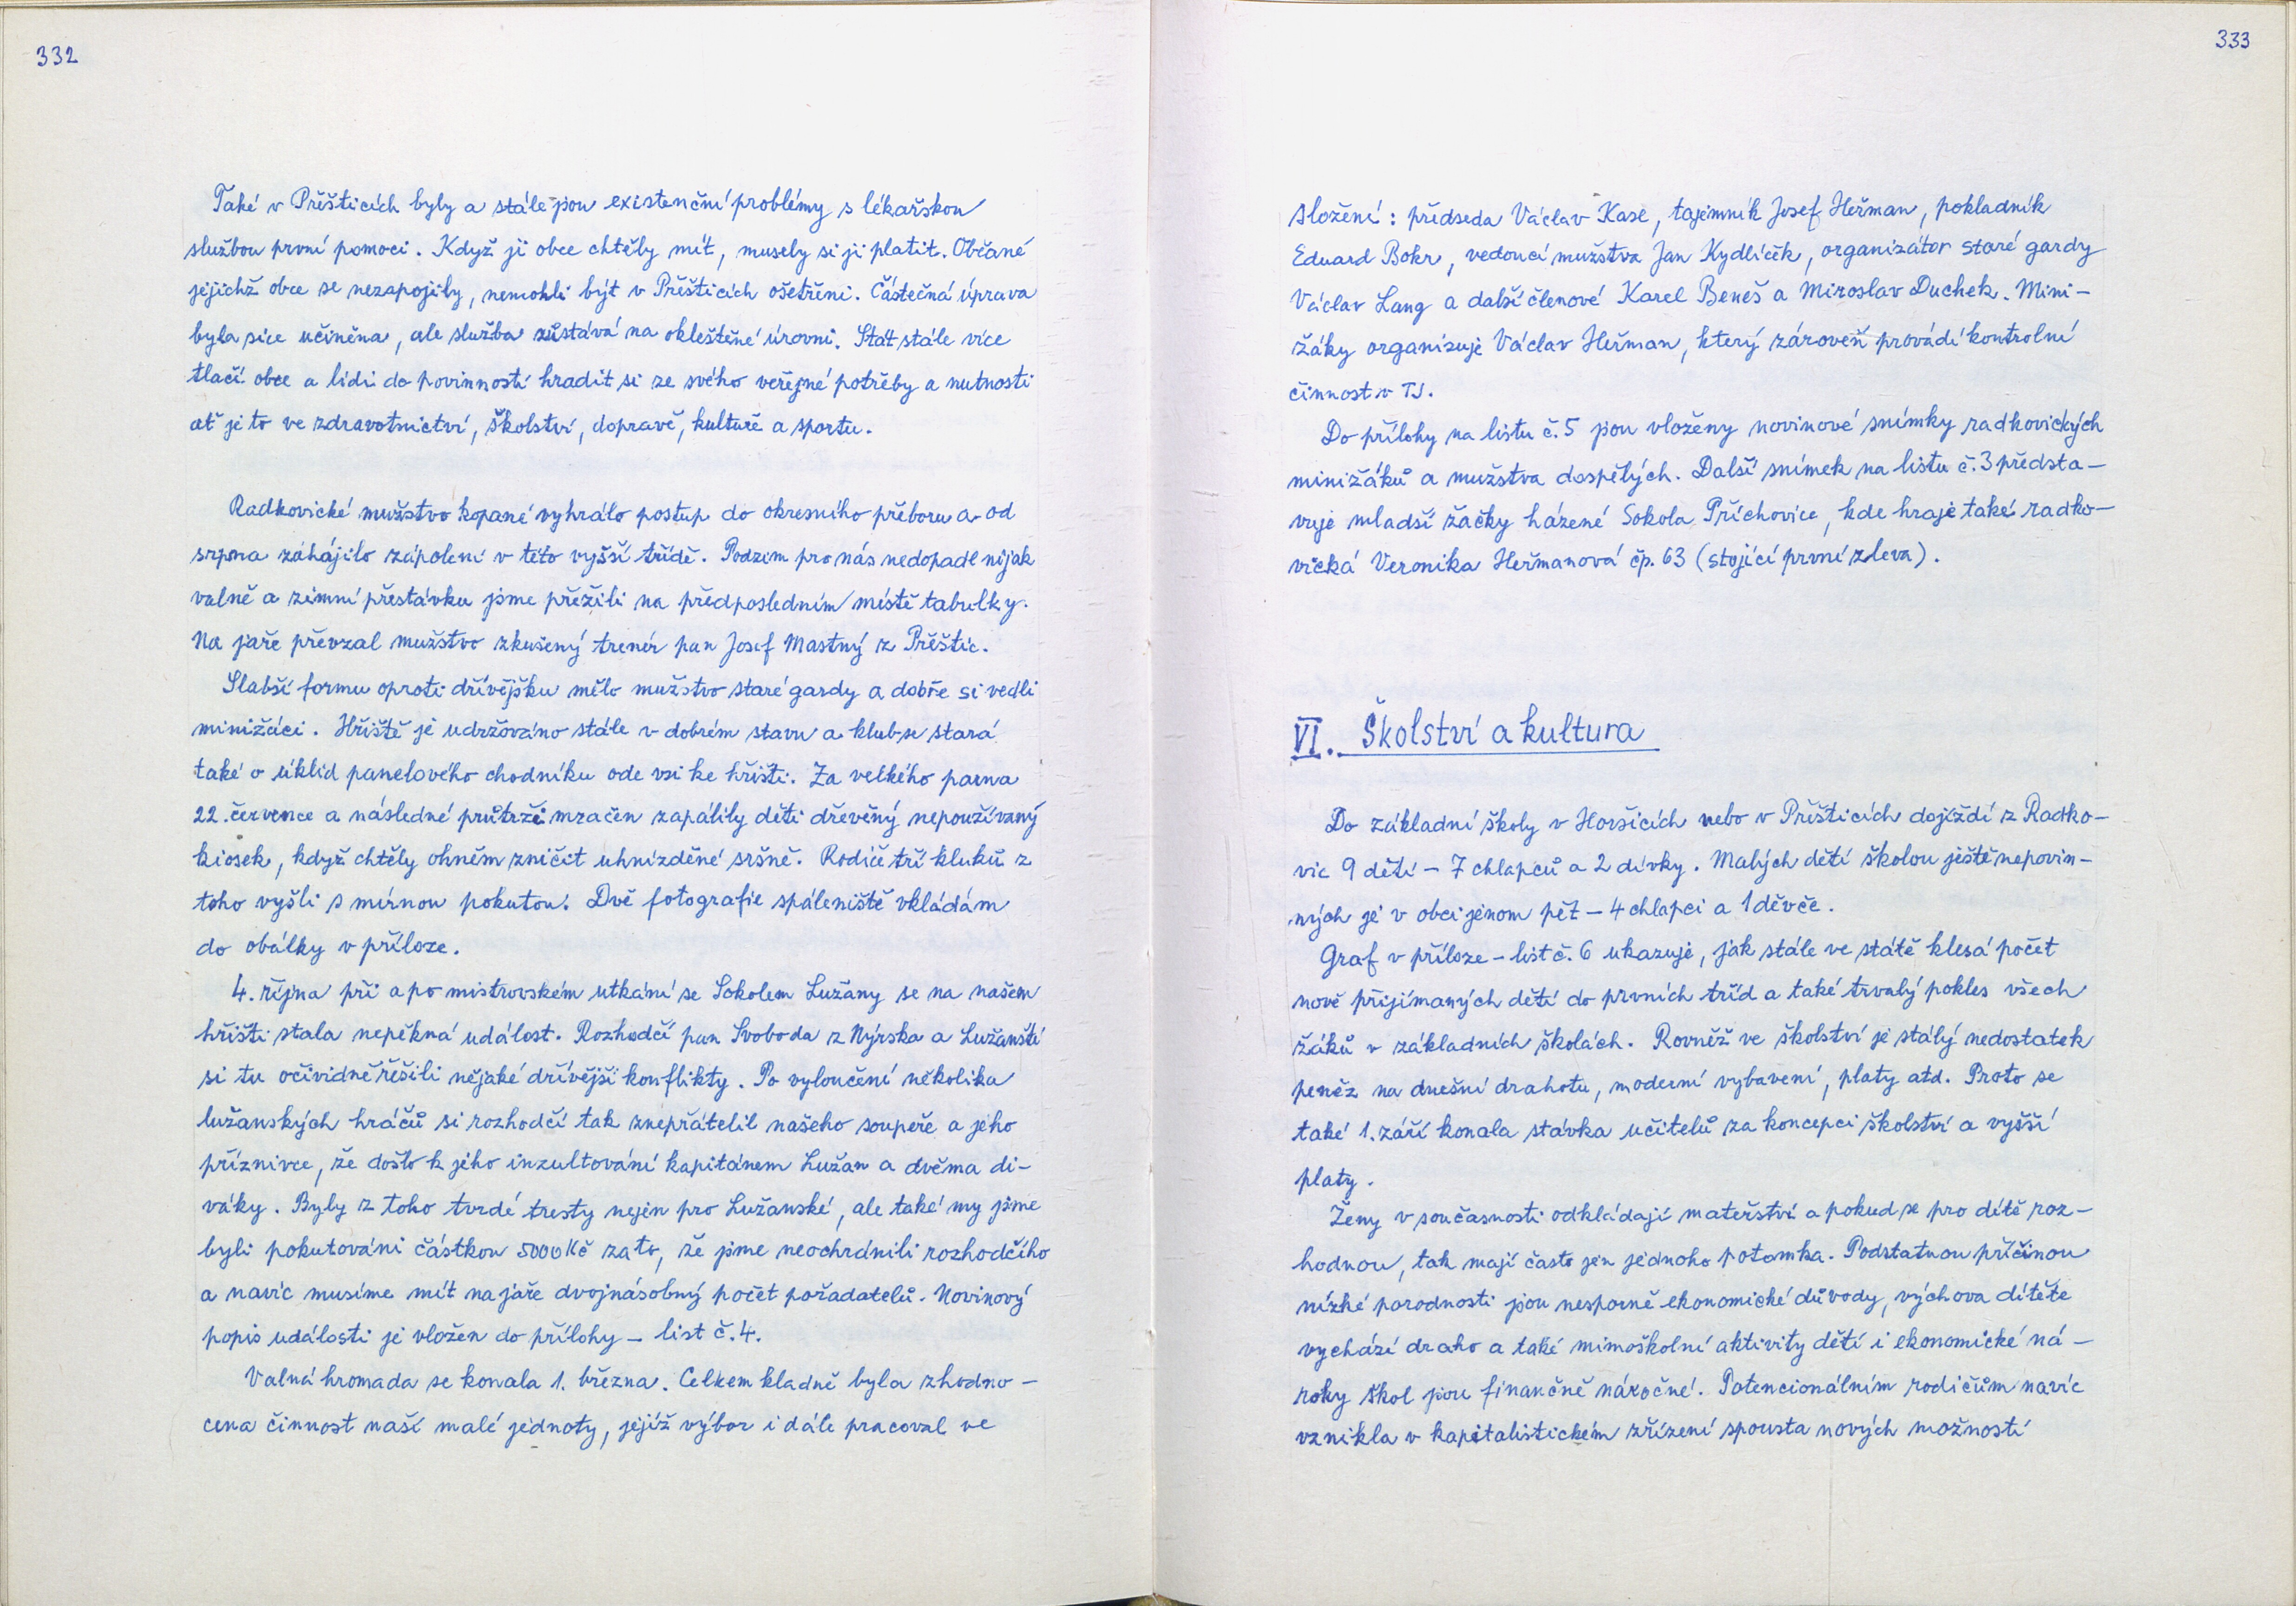 332
Také v Přešticích byly a stále jsou existenční problémy s lékařskou
službou první pomoci. Když ji obce chtěly mít, musely si ji platit. Občané
jejichž obce se nezapojily, nemohli být v Přešticích ošetřeni. Částečná úprava
byla sice učiněna, ale služba zůstává na okleštěné úrovni. Stát stále více
tlačí obce a lidi do povinností hradit si ze svého veřejné potřeby a nutnosti
ať je to ve zdravotnictví, školství, dopravě, kultuře a sportu.
Radkovické mužstvo kopané vyhrálo postup do okresního přeboru a od
srpna zahájilo zápolení v této vyšší třídě. Podzim pro nás nedopadl nijak
valně a zimní přestávku jsme přežili na předposledním místě tabulky.
Na jaře převzal mužstvo zkušený trenér pan Josef Mastný z Přeštic.
Slabší formu oproti dřívějšku mělo mužstvo staré gardy a dobře si vedli
minižáci. Hřiště je udržováno stále v dobrém stavu a klub se stará
také o úklid panelového chodníku ode vsi ke hřišti. Za velkého parna
22. července a následné průtrži mračen zapálily děti dřevěný nepoužívaný
kiosek, když chtěly ohněm zničit uhnízděné sršně. Rodiče tří kluků z
toho vyšli s mírnou pokutou. Dvě fotografie spáleniště vkládám
do obálky v příloze.
4. října při a po mistrovském utkání se Sokolem Lužany se na našem
hřišti stala nepěkná událost. Rozhodčí pan Svoboda z Nýrska a Lužanští
si tu očividně řešili nějaké dřívější konflikty. Po vyloučení několika
lužanských hráčů si rozhodčí tak znepřátelil našeho soupeře a jeho
příznivce, že došlo k jeho inzultování kapitánem Lužan a dvěma di-
váky. Byly z toho tvrdé tresty nejen pro Lužanské, ale také my jsme
byli pokutováni částkou 5000 Kč za to, že jsme neochránili rozhodčího
a navíc musíme mít na jaře dvojnásobný počet pořadatelů. Novinový
popis události je vložen do přílohy - list č. 4.
Valná hromada se konala 1. března. Celkem kladně byla zhodno-
cena činnost naší malé jednoty, jejíž výbor i dále pracoval ve
333
složení: předseda Václav Kase, tajemník Josef Heřman, pokladník
Eduard Bokr, vedoucí mužstva Jan Kydlíček, organizátor staré gardy
Václav Lang a další členové Karel Beneš a Miroslav Duchek. Mini-
žáky organizuje Václav Heřman, který zároveň provádí kontrolní
činnost v TJ.
Do přílohy na listu č. 5 jsou vloženy novinové snímky radkovických
minižáků a mužstva dospělých. Další snímek na listu č. 3 předsta-
vuje mladší žačky házené Sokola Příchovice, kde hraje také radko-
vická Veronika Heřmanová čp. 63 (stojící první zleva).
VI. Školství a kultura
Do základní školy v Horšicích nebo v Přešticích dojíždí z Radko-
vic 9 dětí - 7 chlapců a 2 dívky. Malých dětí školou ještě nepovin-
ných je v obci jenom pět - 4 chlapci a 1 děvče.
Graf v příloze - list č. 6 ukazuje, jak stále ve státě klesá počet
nově přijímaných dětí do prvních tříd a také trvalý pokles všech
žáků v základních školách. Rovněž ve školství je stálý nedostatek
peněz na dnešní drahotu, moderní vybavení, platy atd. Proto se
také 1. září konala stávka učitelů za koncepci školství a vyšší
platy.
Ženy v současnosti odkládají mateřství a pokud se pro dítě roz-
hodnou, tak mají často jen jednoho potomka. Podstatnou příčinou
nízké porodnosti jsou nesporně ekonomické důvody, výchova dítěte
vychází draho a také mimoškolní aktivity dětí i ekonomické ná-
roky škol jsou finančně náročné. Potencionálním rodičům navíc
vznikla v kapitalistickém zřízení spousta nových možností